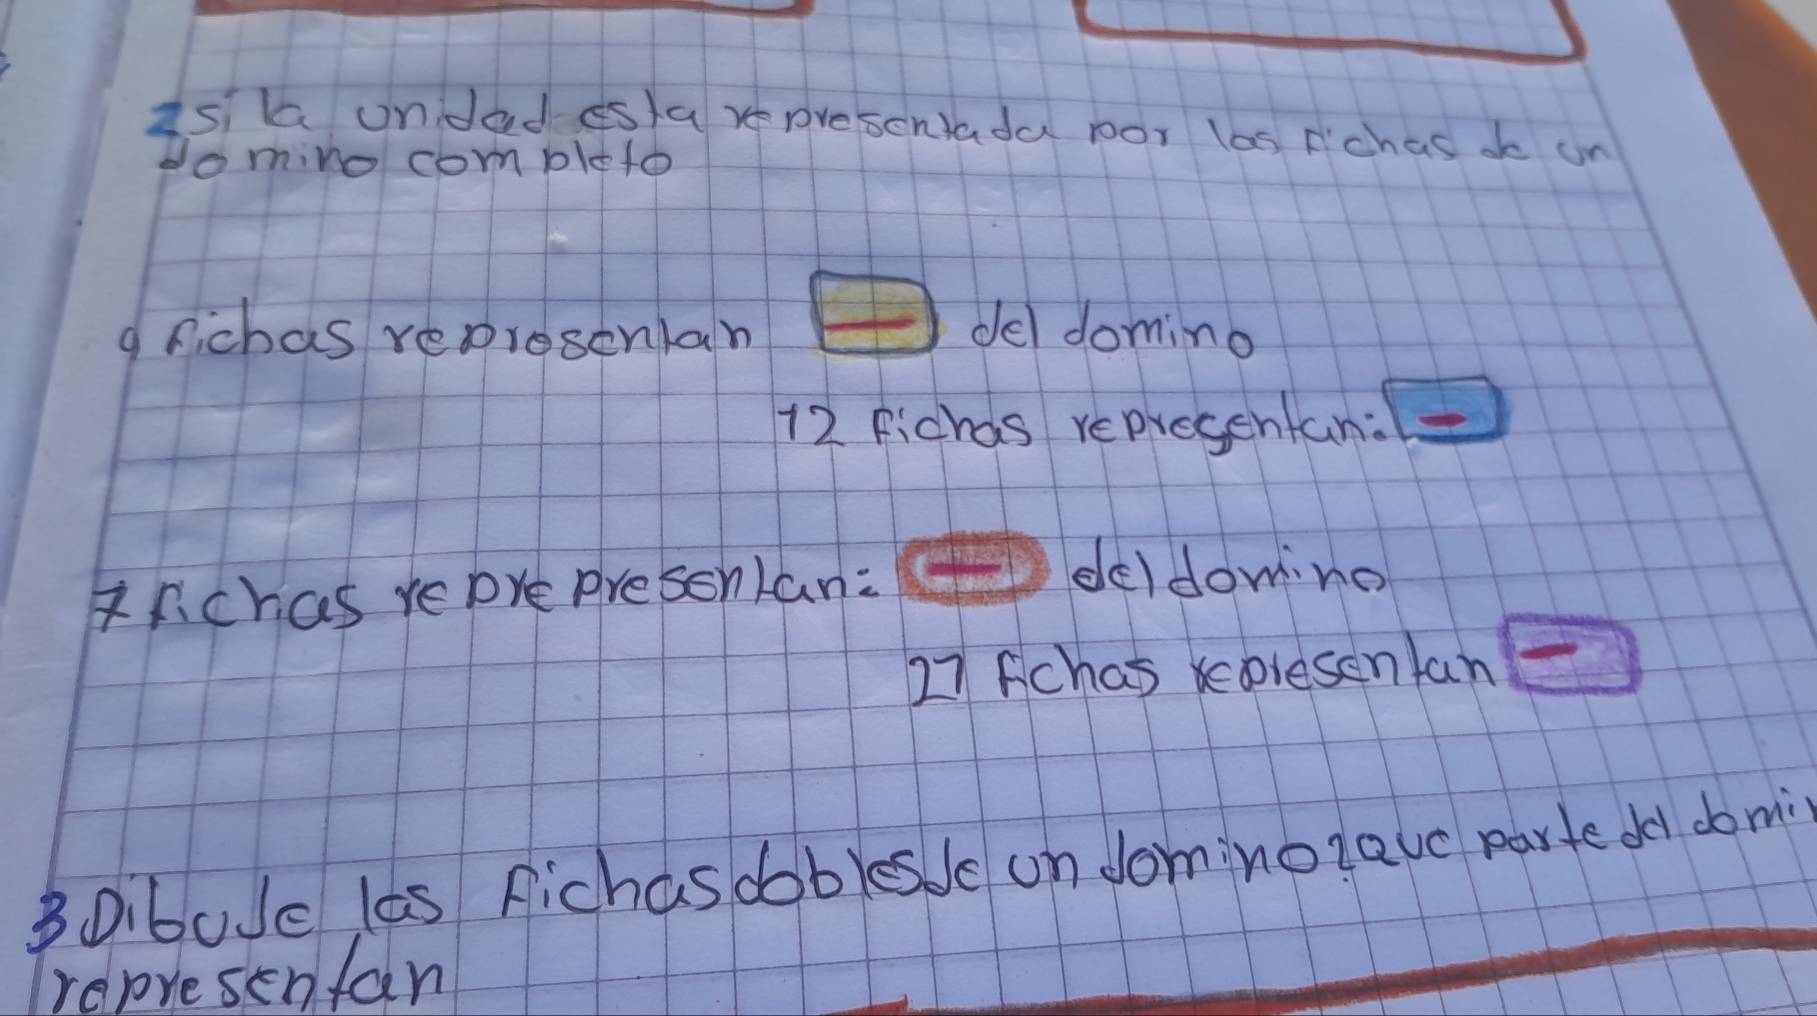 2 si la unidad esta representada por las fichas de un
domino completo
9 fichas representan del domino
12 fichas representan:
7 fichas reprepresentan: del domino
27 fichas representan
3 Dibuje las fichas dobles de un domino ¿Que parte del domin
representan